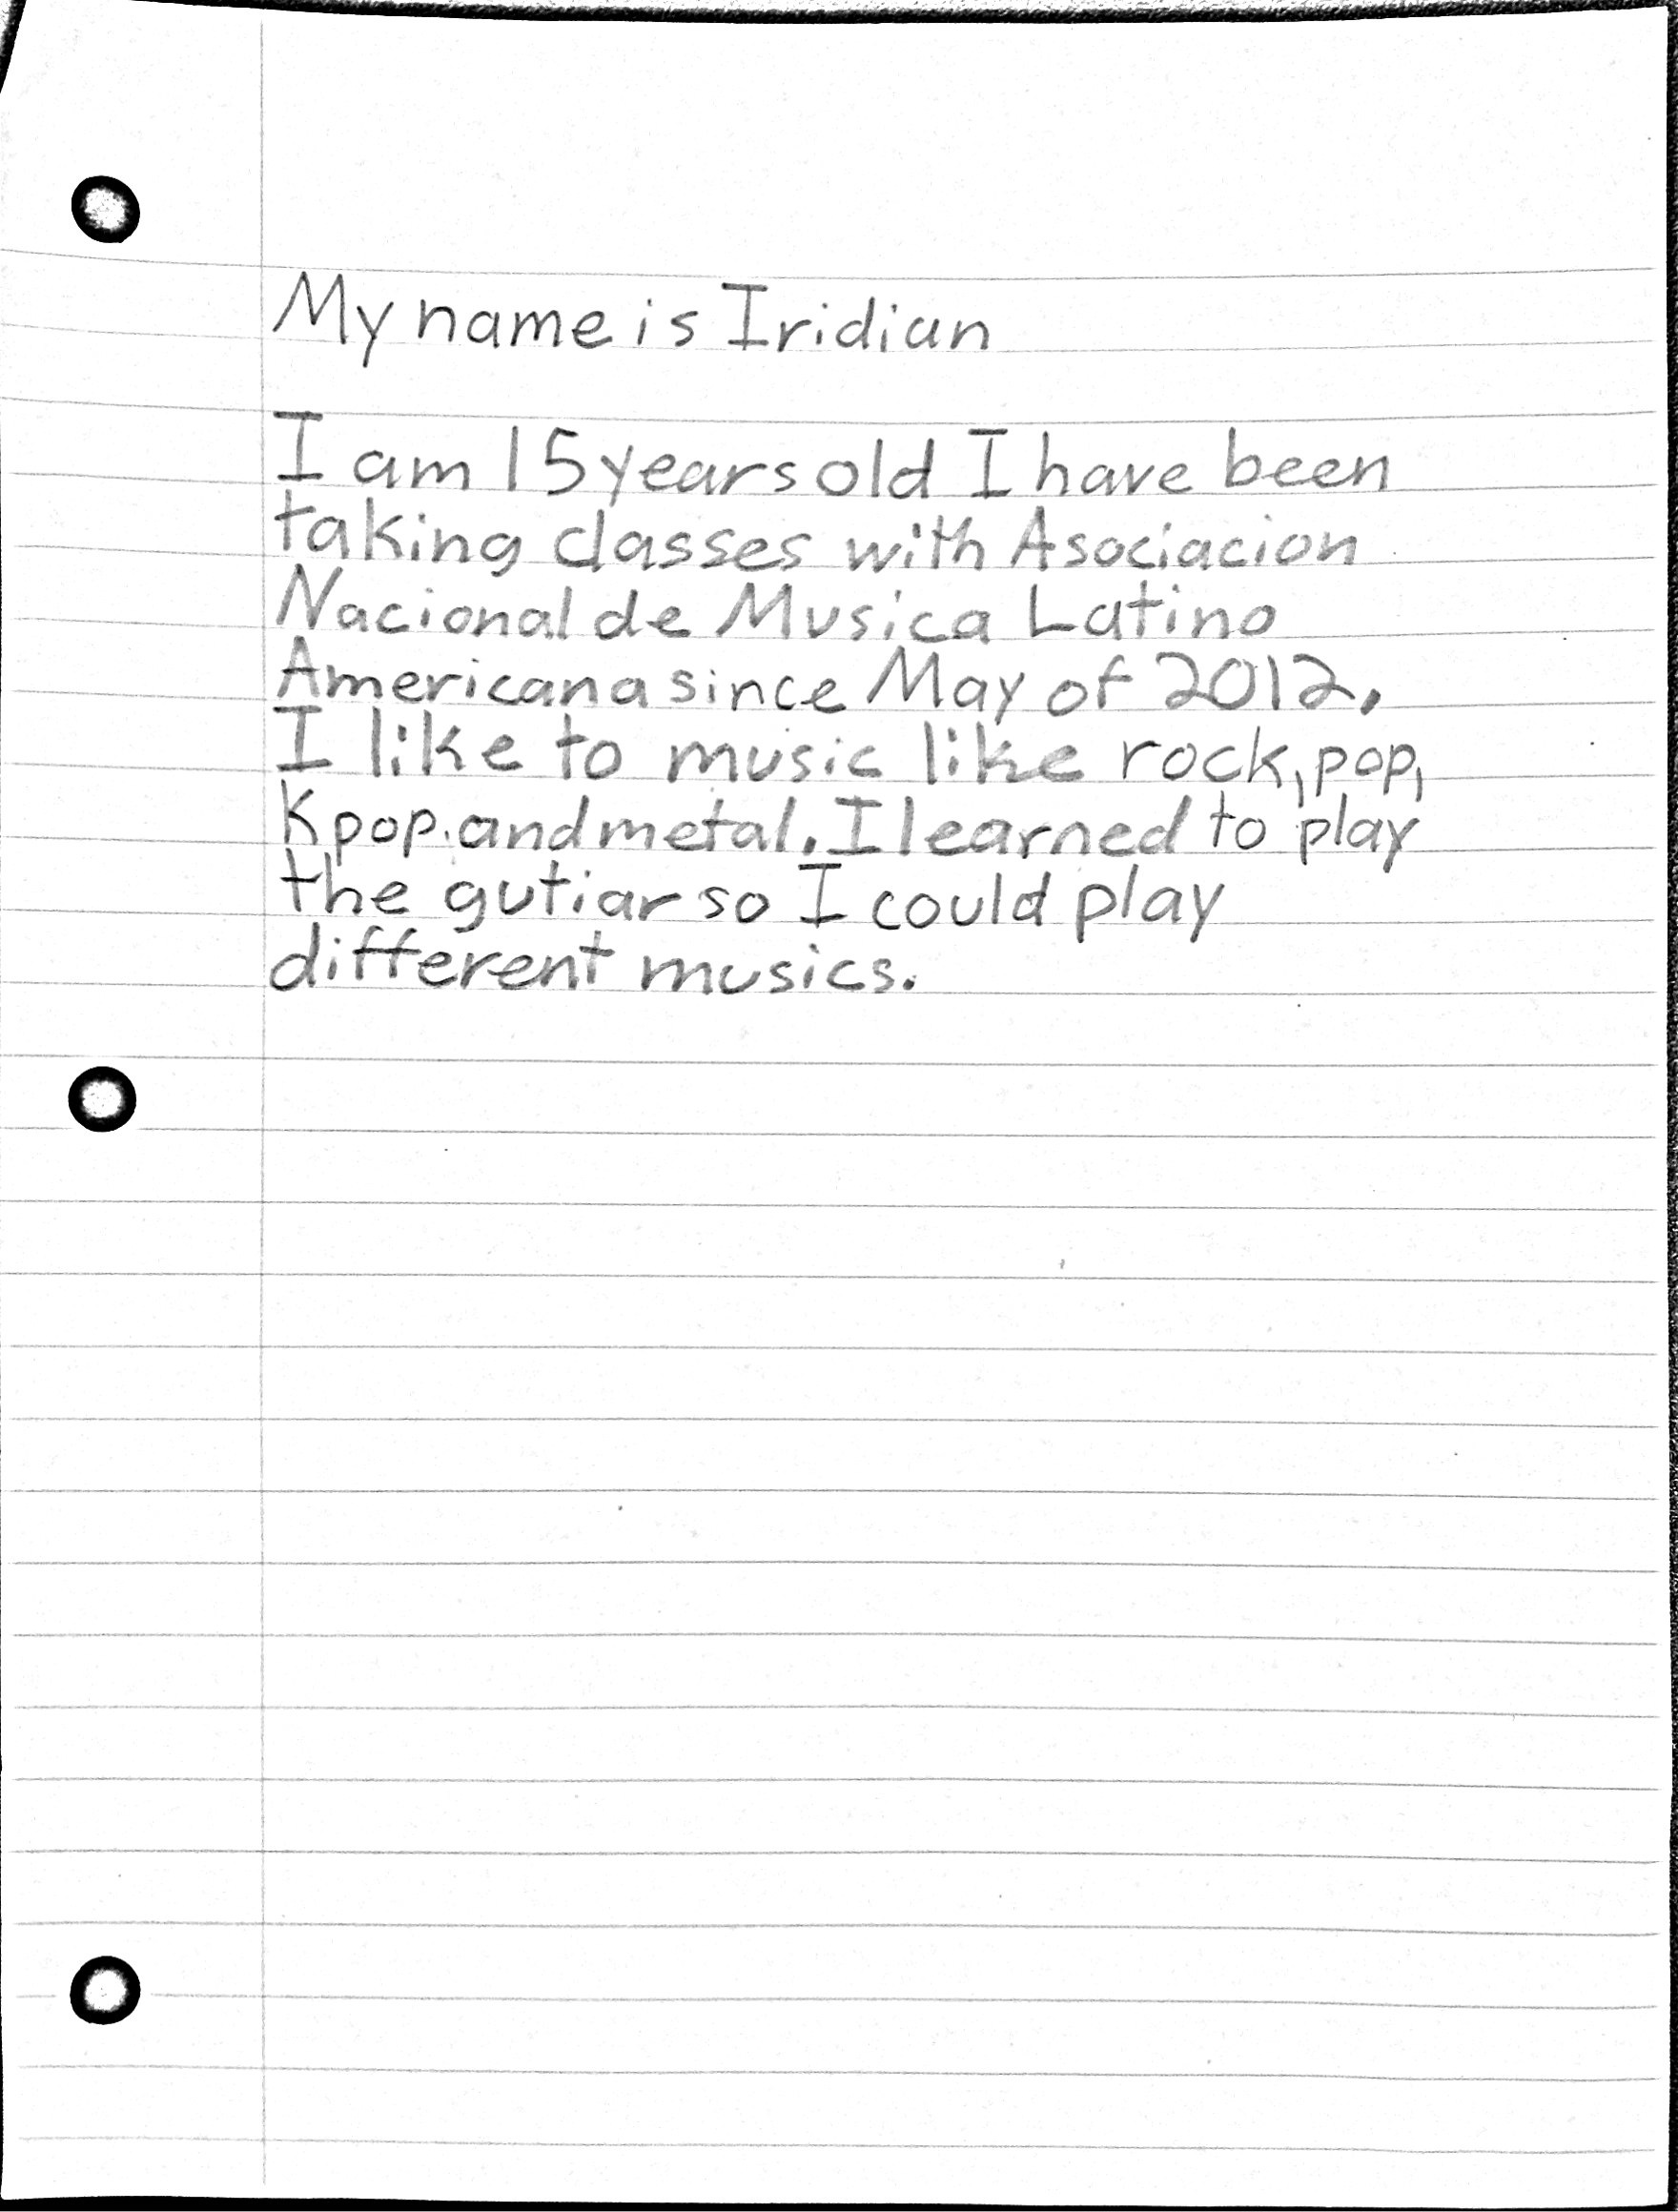 My name is Iridian
I am 15 years old I have been
taking classes with Asociacion
Nacional de Musica Latino
Americana since May of 2012.
I like to music like rock, pop,
Kpop. and metal. I learned to play
the gutiar so I could play
different musics.